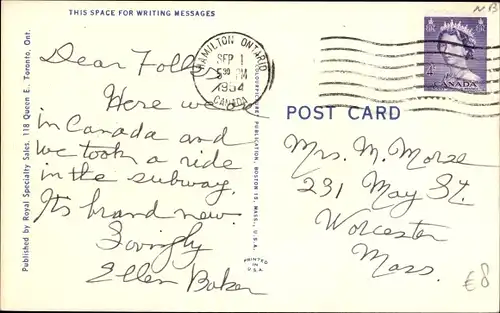 THIS SPACE FOR WRITING MESSAGES
Dear Folks
Here we are
in Canada and
we took a ride
in the subway.
Its brand new.
Lovingly
Ellen Baker
Published by Royal Specialty Sales, 118 Queen E., Toronto, Ont.
HAMILTON ONTARIO
SEP 1
PM
1954
CANADA
PUBLICATION, BOSTON 15, MASS., U.S.A.
PRINTED
IN
U.S.A.
4
CANADA
NB
POST CARD
Mrs. M. Morse
231 May St.
Worcester
Mass.
€8